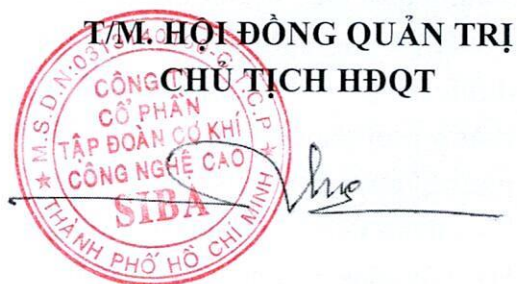 T/M. HỘI ĐỒNG QUẢN TRỊ
CHỦ TỊCH HĐQT
CÔNG TY
CỔ PHẦN
TẬP ĐOÀN CƠ KHÍ
CÔNG NGHỆ CAO
SIBA
THÀNH PHỐ HỒ CHÍ MINH